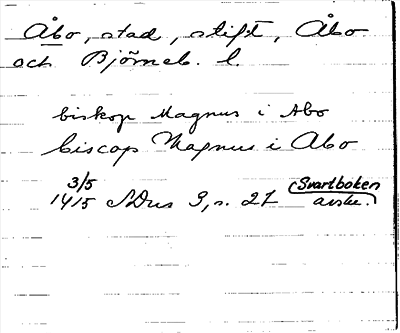 Åbo, stad, stift, Åbo
och Björneb. l.
biskop Magnus i Abo
biscop Magnus i Abo
3/5
1415 SDns 3, s. 27 (Svartboken
avskr.)